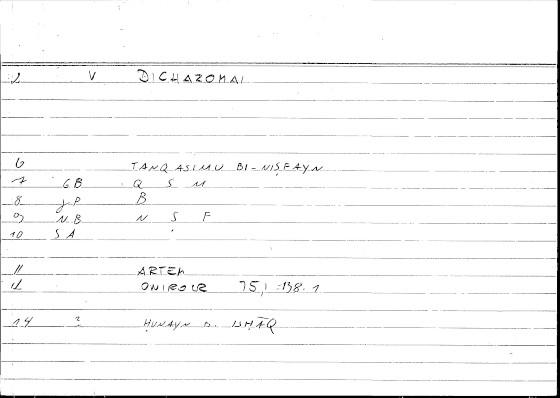 2 V DICHAZOMAI
6 TANQASIMU BI-NIṢFAYN
7 GB Q S M
8 JP B
9 NB N S F
10 SA
11 ARTEM
12 ONIROCR 75,1 :138.1
14 ? ḤUNAYN B. ISḤĀQ